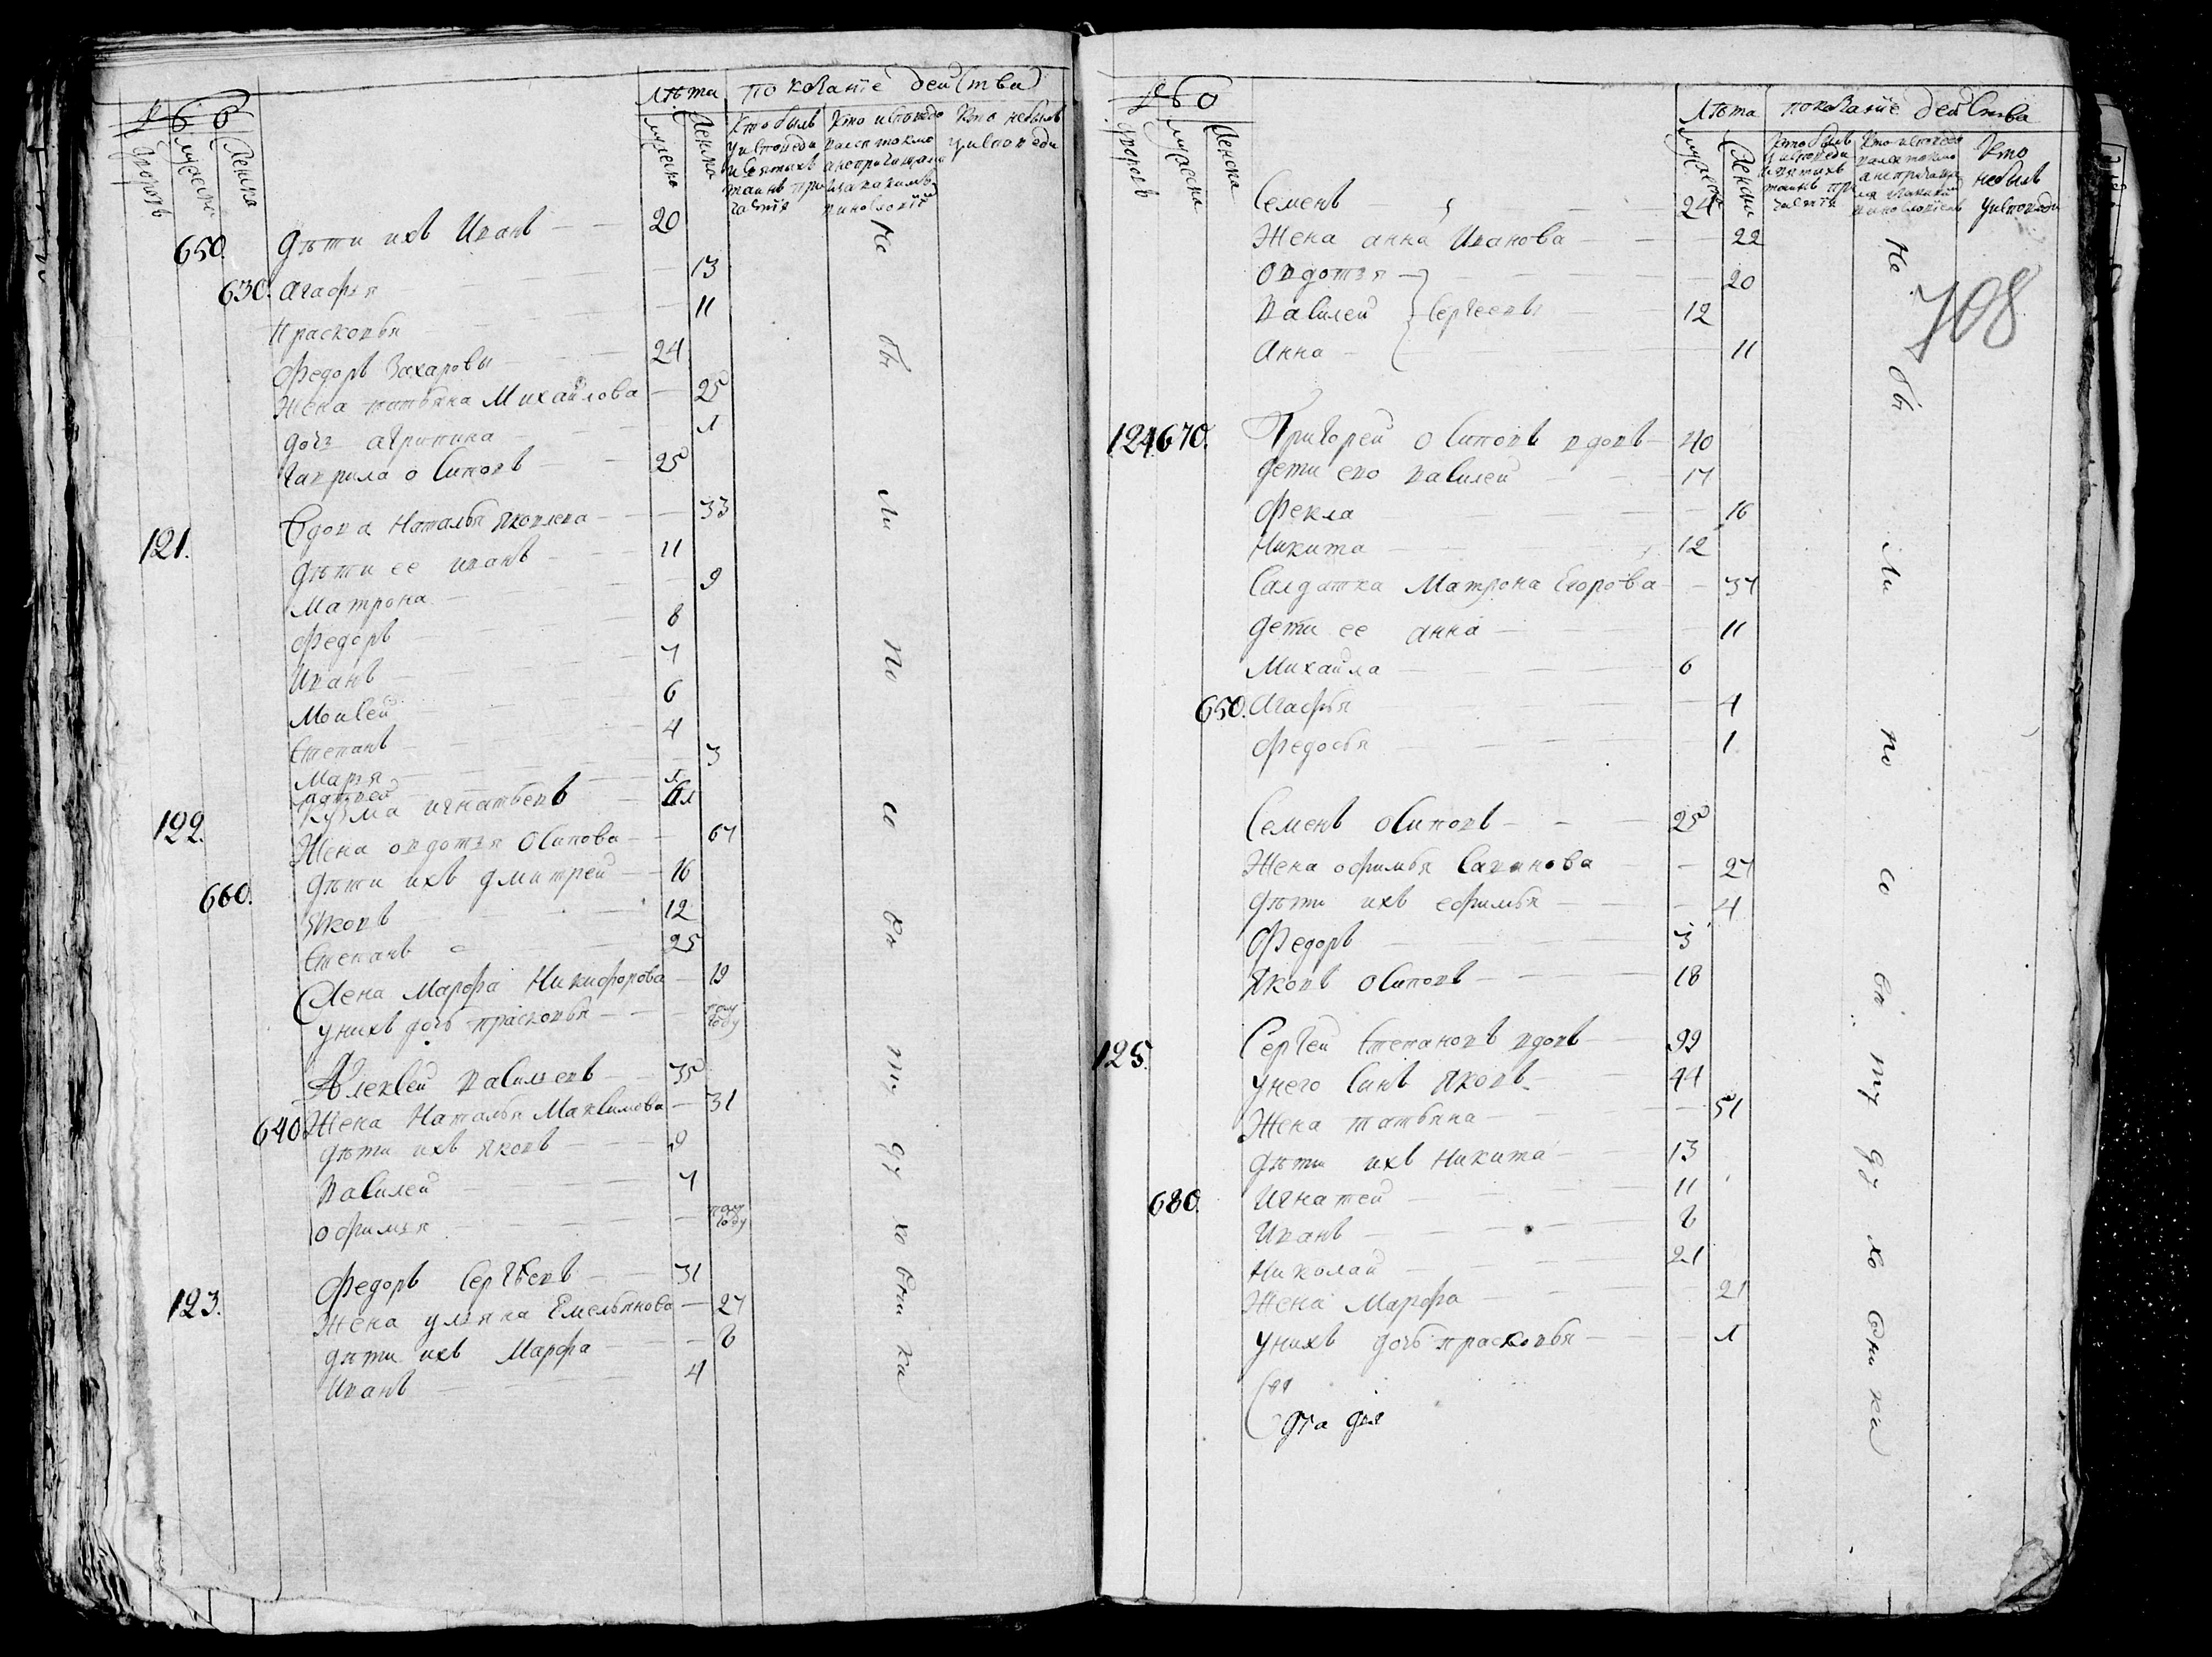 Лѣта показание действа
мужеска женска
дворовъ мужеска женска
Кто былъ у исповеди и святыхъ таинъ причастия
Кто исповедовался токмо а не причащался и за какимъ виновлопием
Кто небылъ у исповеди
650. Дѣти ихъ Иванъ — 20
630. Агафья — 13
Прасковья — 11
Федоръ Захаровы — 24
Жена татьяна Михайлова — 25
дочь агрипина — 1
Гаврила осиповъ — 25
121. Вдова Наталья Яковлева — 33
Дѣти ее иванъ — 11
Матрона — 9
Федоръ — 8
Иванъ — 7
Моисей — 6
Степанъ — 4
Марья — 3
матвей — 1
122. Кузма игнатьевъ
Жена овдотья Осипова — 67
660. дѣти ихъ дмитрей — 16
Яковъ — 12
Степанъ — 25
Жена Марфа Никифорова — 19
у нихъ дочь прасковья — полу году
Алексей васильевъ — 35
640 Жена Наталья Максимова — 31
дѣти ихъ яковъ — 9
Василей — 7
офимья — полу году
123. Федоръ Сергѣевъ — 31
Жена ульяна Емельянова — 27
дѣти ихъ Марфа — 8
Иванъ — 4
Не бы ли по со вя ту ду хо вни ка
Лѣта показание действа
мужеска женска
дворовъ мужеска женска
Кто былъ у исповеди и святыхъ таинъ причастия
Кто небылъ у исповеди
708
Семенъ — 24
Жена анна Иванова — 22
Овдотья — 20
Василей } Сергеевы — 12
Анна — 11
124 670. Григорей осиповъ вдовъ — 40
дети ево василей — 17
Фекла — 16
Никита — 12
Салдатка Матрона Егорова — 37
дети ее анна — 11
Михайла — 6
650. Агафья — 4
Федосья — 1
Семенъ осиповъ — 25
Жена офимья Савинова — 27
дѣти ихъ ефимья — 4
Федоръ — 3
Яковъ осиповъ — 18
125. Сергей Степановъ вдовъ — 99
у него сынъ яковъ — 44
Жена татьяна — 51
дѣти ихъ никита — 13
680. Игнатей — 11
Иванъ — 8
Николай — 21
Жена Марфа — 21
у нихъ дочь прасковья — 1
Не бы ли по со вя ту ду хо вни ка